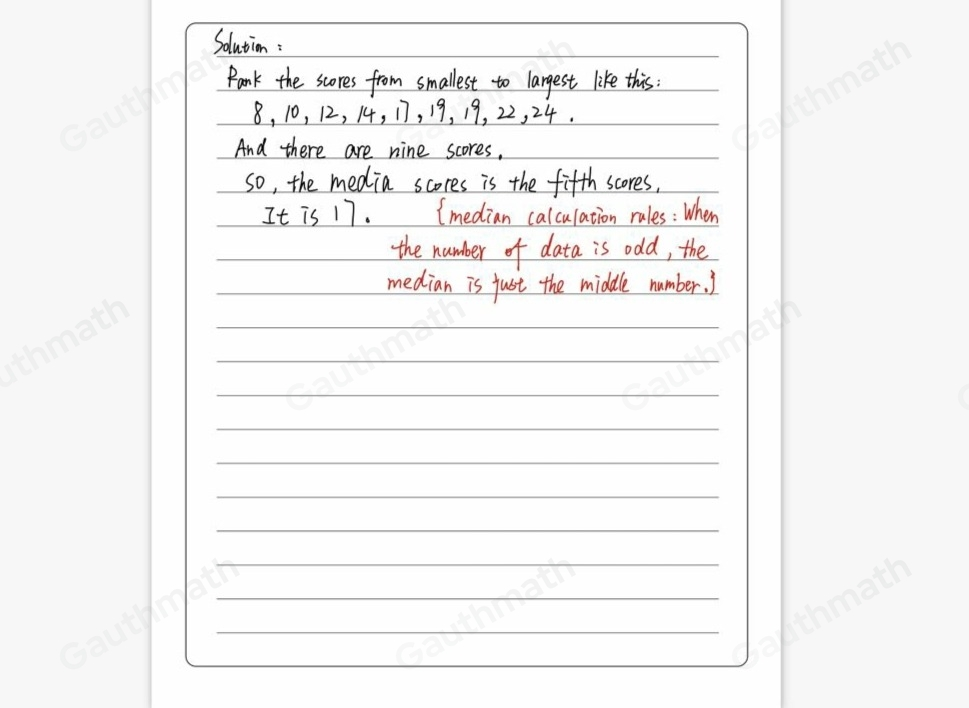 Solution :
Rank the scores from smallest to largest like this:
8, 10, 12, 14, 17, 19, 19, 22, 24 .
And there are nine scores,
so, the media scores is the fifth scores,
It is 17. {median calculation rules : When
the number of data is odd, the
median is just the middle number.}
Gauthmath
Gauthmath
Gauthmath
uthmath
Gauthmath
Gauthmath
Gauthmath
Gauthmath
Gauthmath